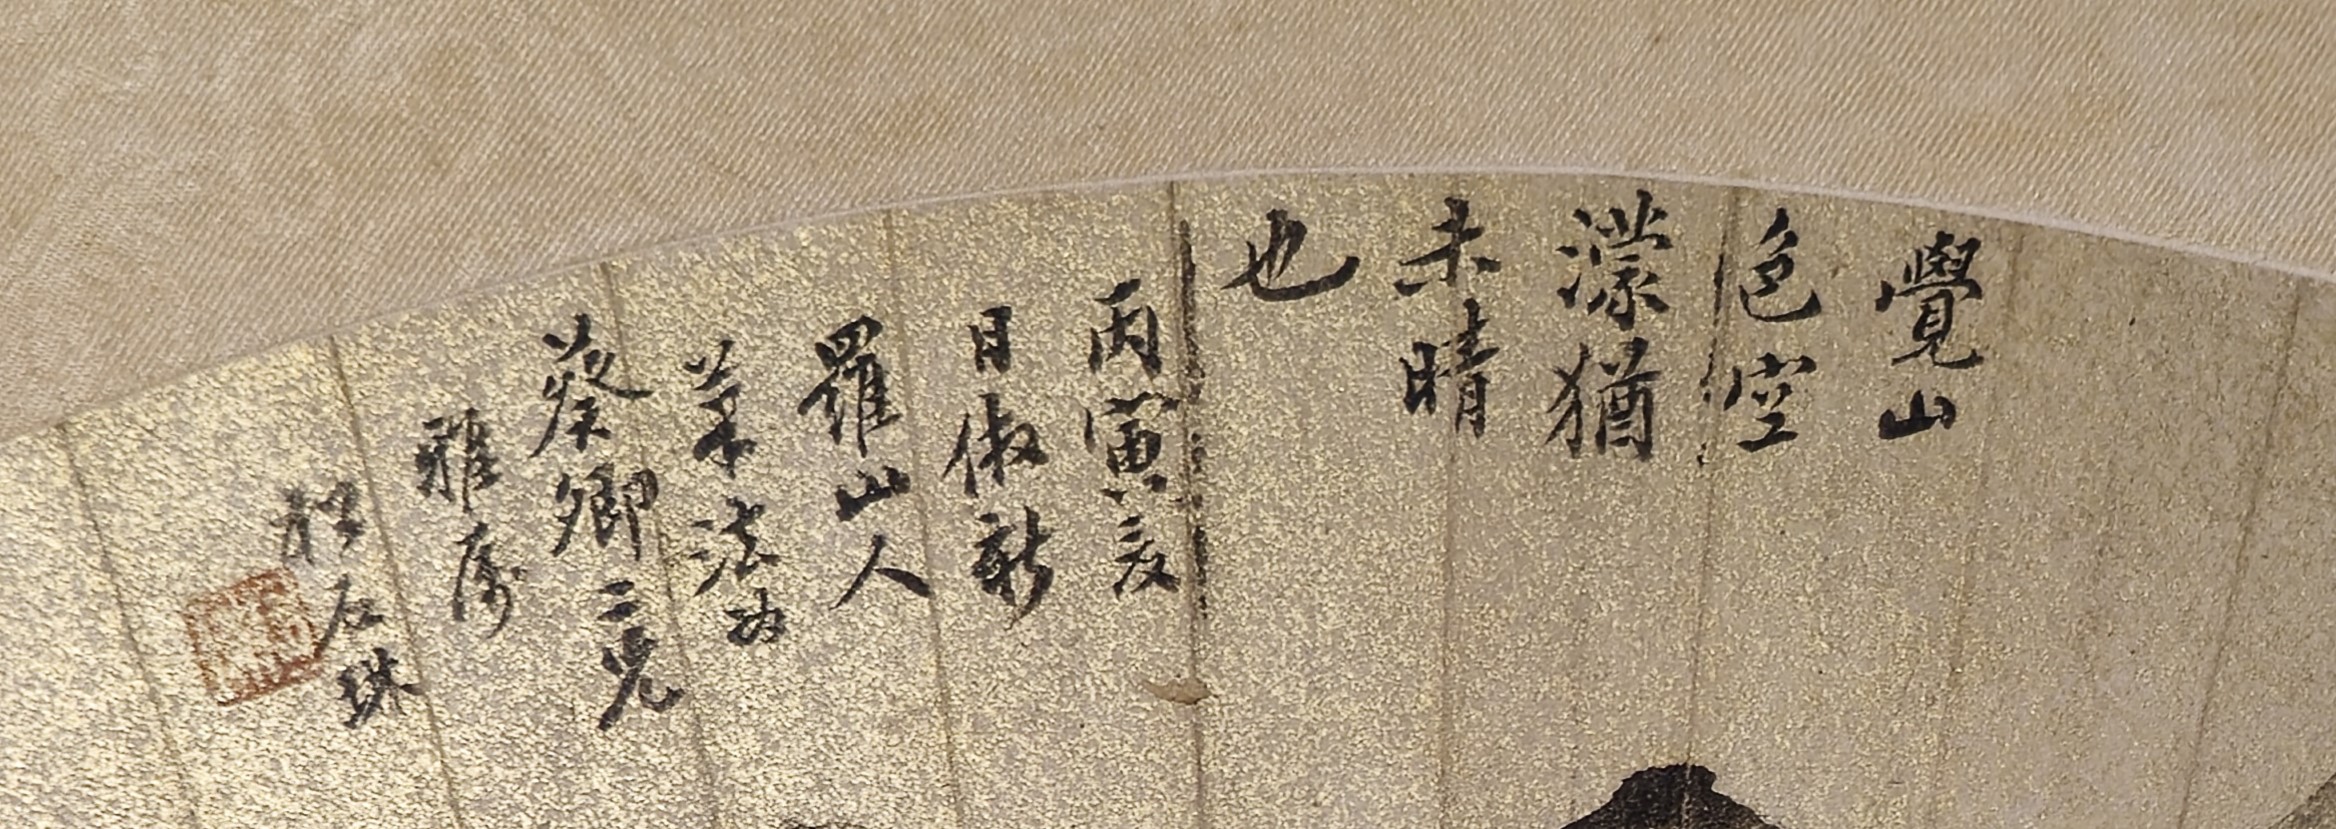 覺山
色空
濛猶
未晴
也
丙寅夏
日倣新
羅山人
筆法為
葵卿二兄
雅属
程石珠